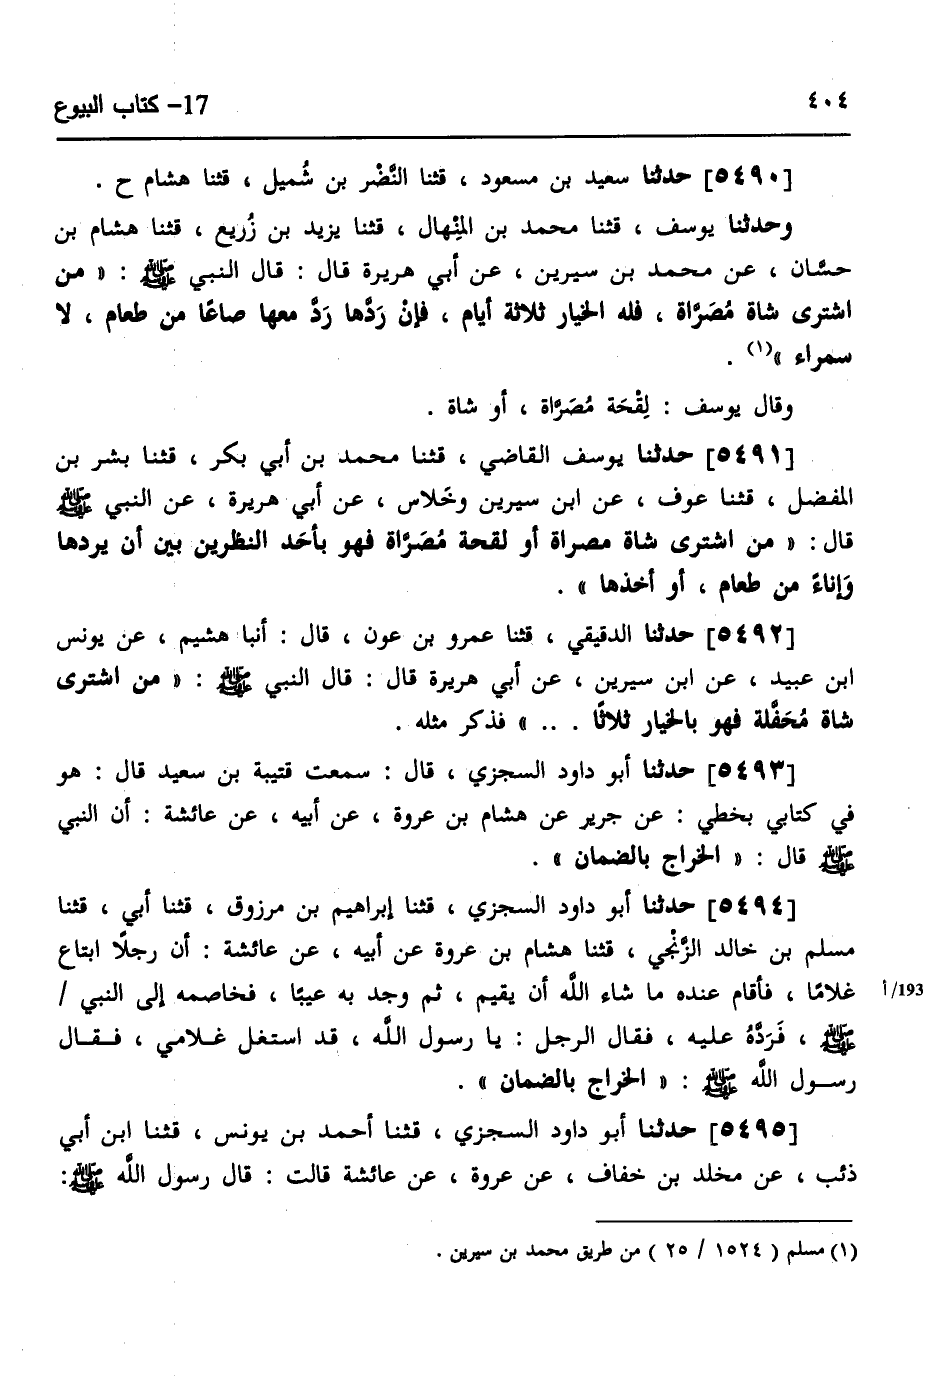 ٤٠٤
17- كتاب البيوع
[٥٤٩٠] حدثنا سعيد بن مسعود ، قثنا النَّضْر بن شُميل ، قثنا هشام ح .
وحدثنا يوسف ، قثنا محمد بن المِنْهال ، قثنا يزيد بن زُريع ، قثنا هشام بن
حسَّان ، عن محمد بن سيرين ، عن أبي هريرة قال : قال النبي ﷺ : « من
اشترى شاة مُصَرَّاة ، فله الخيار ثلاثة أيام ، فإنْ رَدَّها رَدَّ معها صاعًا من طعام ، لا
سمراء »(١) .
وقال يوسف : لِقْحَة مُصَرَّاة ، أو شاة .
[٥٤٩١] حدثنا يوسف القاضي ، قثنا محمد بن أبي بكر ، قثنا بشر بن
المفضل ، قثنا عوف ، عن ابن سيرين وخَلاس ، عن أبي هريرة ، عن النبي ﷺ
قال : « من اشترى شاة مصراة أو لقحة مُصَرَّاة فهو بأحَد النظرين بين أن يردها
وَإناءً من طعام ، أو أخذها » .
[٥٤٩٢] حدثنا الدقيقي ، قثنا عمرو بن عون ، قال : أنبا هشيم ، عن يونس
ابن عبيد ، عن ابن سيرين ، عن أبي هريرة قال : قال النبي ﷺ : « من اشترى
شاة مُحَفَّلة فهو بالخيار ثلاثًا . .. » فذكر مثله .
[٥٤٩٣] حدثنا أبو داود السجزي ، قال : سمعت قتيبة بن سعيد قال : هو
في كتابي بخطي : عن جرير عن هشام بن عروة ، عن أبيه ، عن عائشة : أن النبي
ﷺ قال : « الخراج بالضمان » .
[٥٤٩٤] حدثنا أبو داود السجزي ، قثنا إبراهيم بن مرزوق ، قثنا أبي ، قثنا
مسلم بن خالد الزَّنْجي ، قثنا هشام بن عروة عن أبيه ، عن عائشة : أن رجلًا ابتاع
غلامًا ، فأقام عنده ما شاء اللَّه أن يقيم ، ثم وجد به عيبًا ، فخاصمه إلى النبي /
193/أ
ﷺ ، فَرَدَّهُ عليه ، فقال الرجل : يا رسول اللَّه ، قد استغل غـلامي ، فـقـال
رسـول اللَّه ﷺ : « الخراج بالضمان » .
[٥٤٩٥] حدثنا أبو داود السجزي ، قثنا أحمد بن يونس ، قثنا ابن أبي
ذئب ، عن مخلد بن خفاف ، عن عروة ، عن عائشة قالت : قال رسول اللَّه ﷺ:
(١) مسلم ( ١٥٢٤ / ٢٥ ) من طريق محمد بن سيرين .